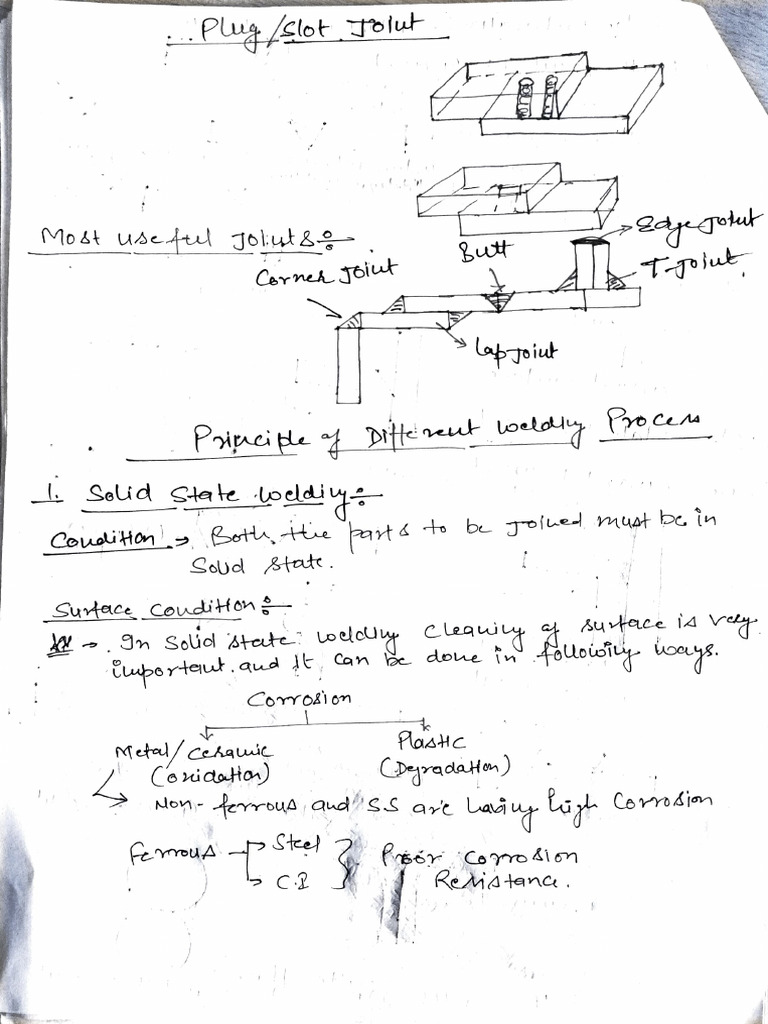 Plug/Slot Joint
Most useful Joints ÷
Edge Joint
Butt
T-Joint.
Corner Joint
Lap Joint
Principle of Different Welding Process
1. Solid State Welding ÷
Condition → Both the parts to be joined must be in
Solid State.
Surface Condition ÷
→ In Solid state welding cleaning of surface is very
important and It can be done in following ways.
Corrosion
Metal/Ceramic
(Oxidation)
Plastic
(Degradation)
→ Non-ferrous and SS are having high Corrosion
Ferrous → Steel
→ C.I
} Poor Corrosion
Resistance.